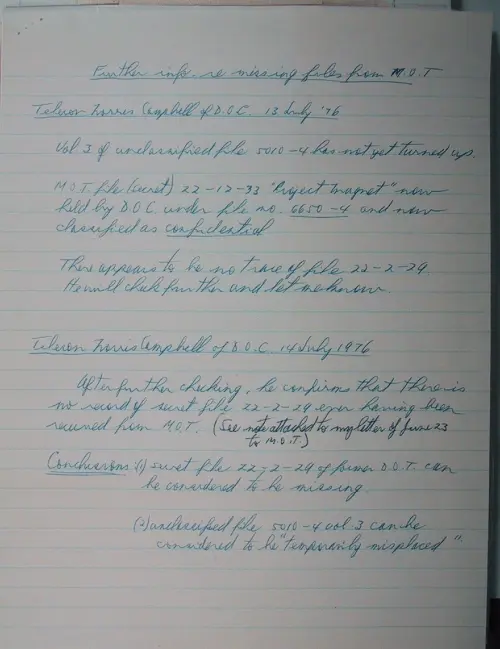 Further info re missing files from M.O.T
Telecon Norris Campbell of D.O.C. 13 July '76
Vol. 3 of unclassified file 5010-4 has not yet turned up.
M.O.T. file (secret) 22-12-33 "Project Magnet" now
held by D.O.C. under file no. 6650-4 and now
classified as confidential
There appears to be no trace of file 22-2-29.
He will check further and let me know.
Telecon Norris Campbell of D.O.C. 14 July 1976
After further checking, he confirms that there is
no record of secret file 22-2-29 ever having been
received from M.O.T. (See note attached to my letter of June 23
to M.O.T.)
Conclusions: (1) secret file 22-2-29 of former D.O.T. can
be considered to be missing.
(2) unclassified file 5010-4 vol. 3 can be
considered to be "temporarily misplaced"